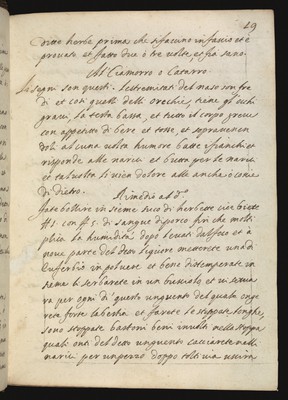 29
dette herbe prima che si facino infascio et è
provato et fatto due ò tre volte, et sia sano.
Al Ciamorro o Catarro
Li segni son questi. L'estremità del naso son fre
di et cosi quelle dell' orechie, tiene gl'occhi
gravi, la testa bassa, et tutto il corpo greve
con appetito di bere et tosse, et sopravenen
doli alcuna volta humore batte i fianchi et
risponde alle narici et buttà per le narici
et talvolta li vien dolore alle anche ò cime
di dietro. Rimedio ad dº
Fate bollire insieme succo di herbette
con di sangue di porco sin che molti
plica la humidità dopo levati dal foco et à
nove parte del detto ligiore meterete una di
Euferbio in polvere et bene distemperate in
sema li serbarete in un bussolo, et vi servi
ra per ogni di questo unguento del quale onge
rete forte la bestia et farete le stoppate longhe,
sono stoppate bastoni ben involti nella stoppa
quali onti del detto unguento cacciarete nelle
narici per un pezzo doppo tolti via uscira